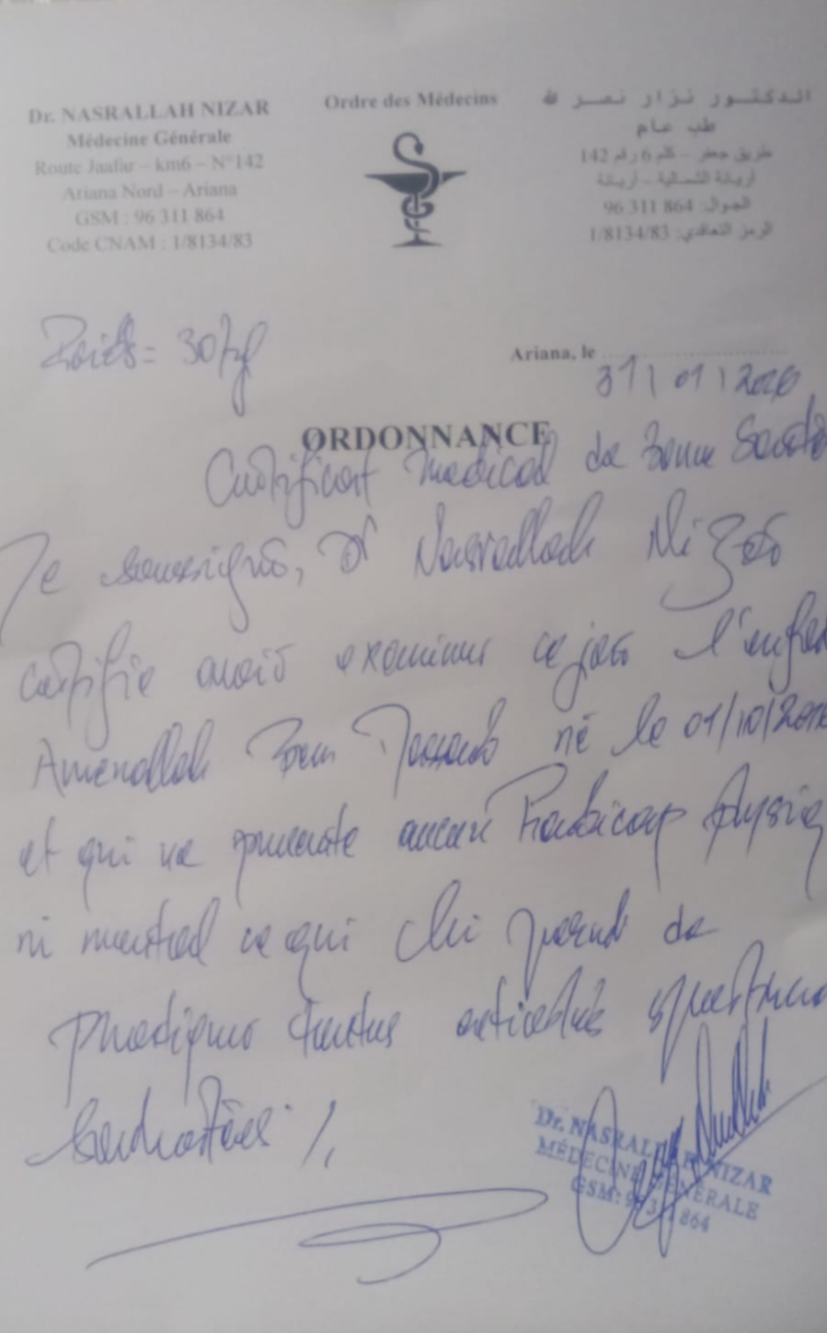 Dr. NASRALLAH NIZAR
Médecine Générale
Route Jaafar – km6 – N°142
Ariana Nord – Ariana
GSM : 96 311 864
Code CNAM : 1/8134/83
Ordre des Médecins
الدكتور نزار نصر الله
طب عام
طريق جعفر – كلم 6 رقم 142
أريانة الشمالية – أريانة
الجوال: 96 311 864
الرمز التعاقدي: 1/8134/83
Poids = 30 kg
Ariana, le
31/01/2026
ORDONNANCE
Certificat Medical de bonne Santé
Je soussigné, Dr Nasrallah Nizar
certifie avoir examiner ce jour l'enfan
Amenallah Ben né le 01/10/201
et qui ne présente aucun handicap physiq
ni mental ce qui lui permet de
pratiquer toutes activités sportives
Dr. NASRALLAH NIZAR
MÉDECINE GÉNÉRALE
GSM: 96 311 864